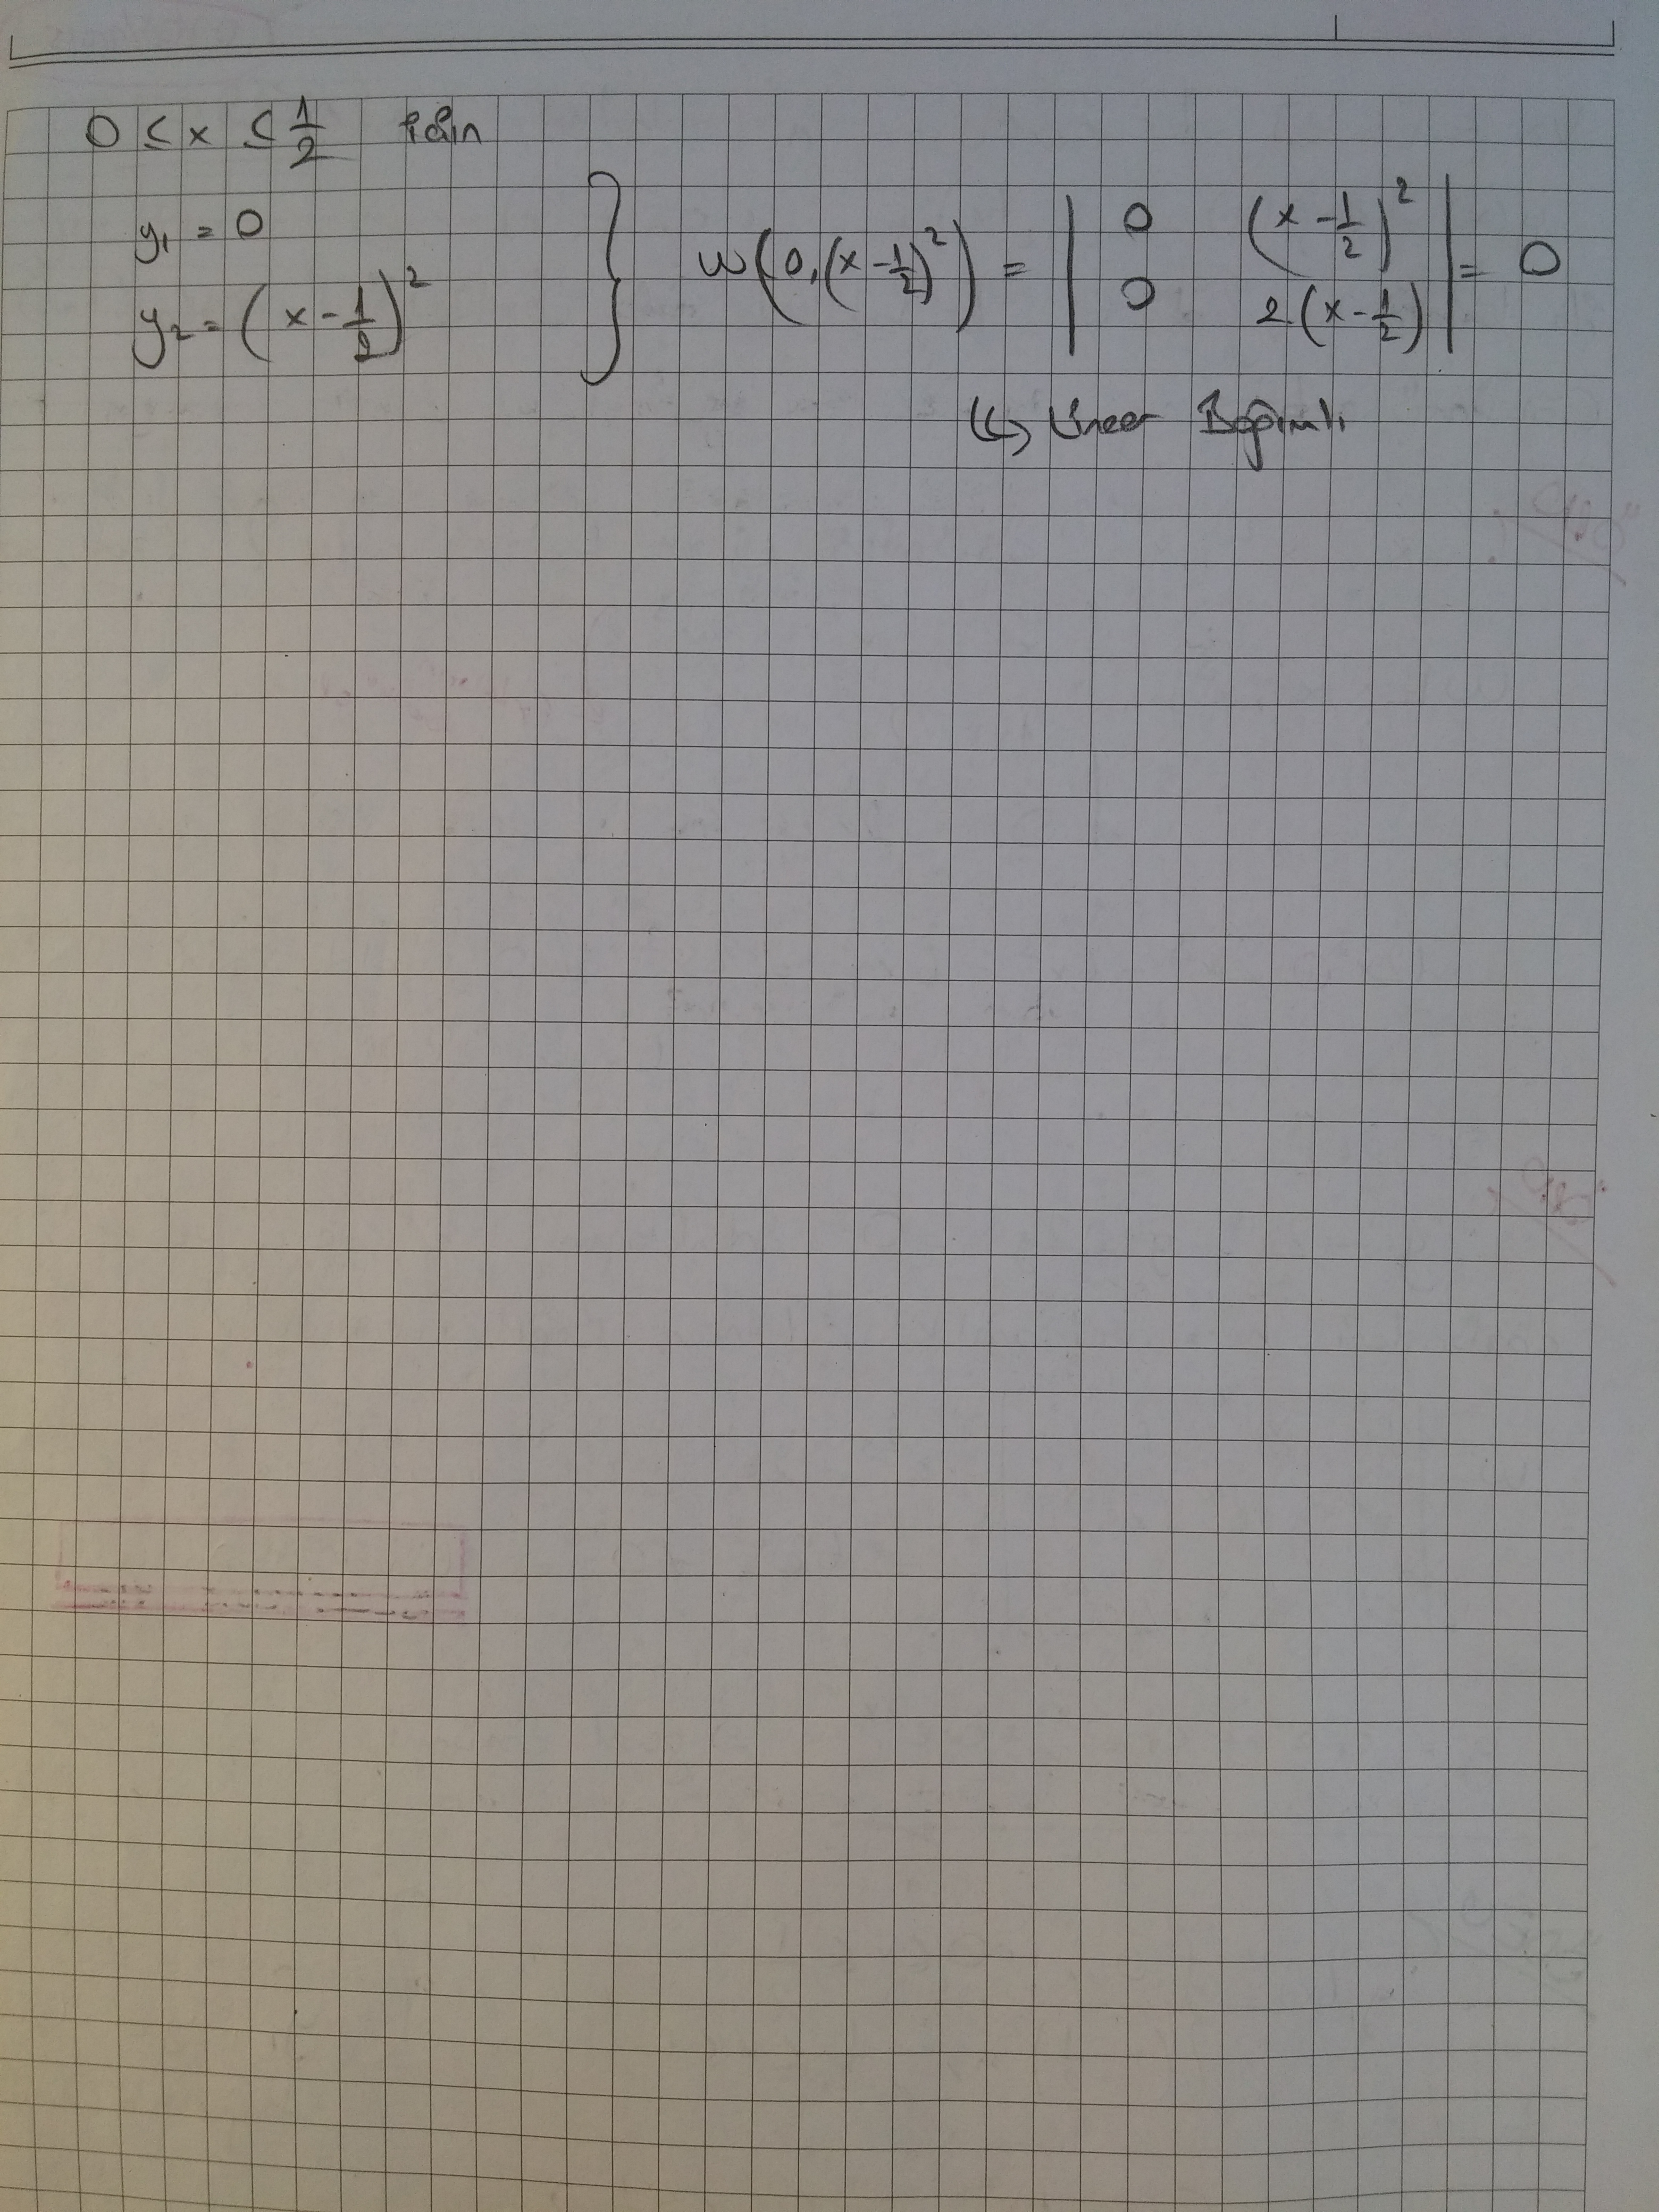 0 ≤ x ≤ 1/2 için
y₁ = 0
y₂ = (x - 1/2)²
} w(0, (x - 1/2)²) = | 0 (x - 1/2)² |
| 0 2(x - 1/2) | = 0
↳ Lineer Bağımlı